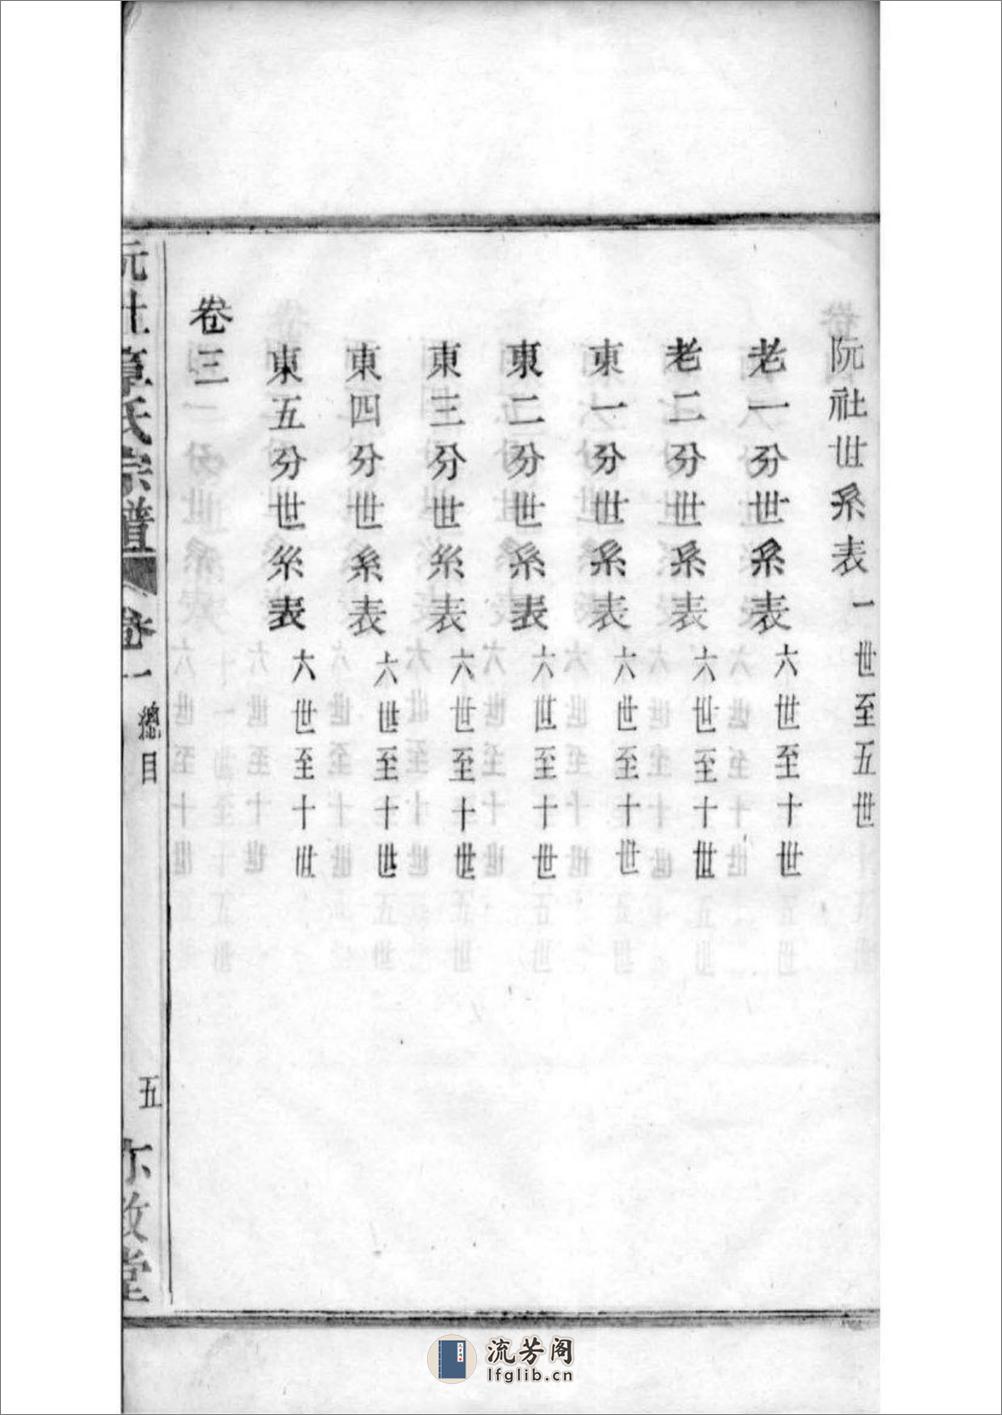 阮社世系表 一世至五世
老一分世系表 六世至十世
老二分世系表 六世至十世
東一分世系表 六世至十世
東二分世系表 六世至十世
東三分世系表 六世至十世
東四分世系表 六世至十世
東五分世系表 六世至十世
卷三
阮社章氏宗譜 卷一 總目 五
流芳阁
lfglib.cn